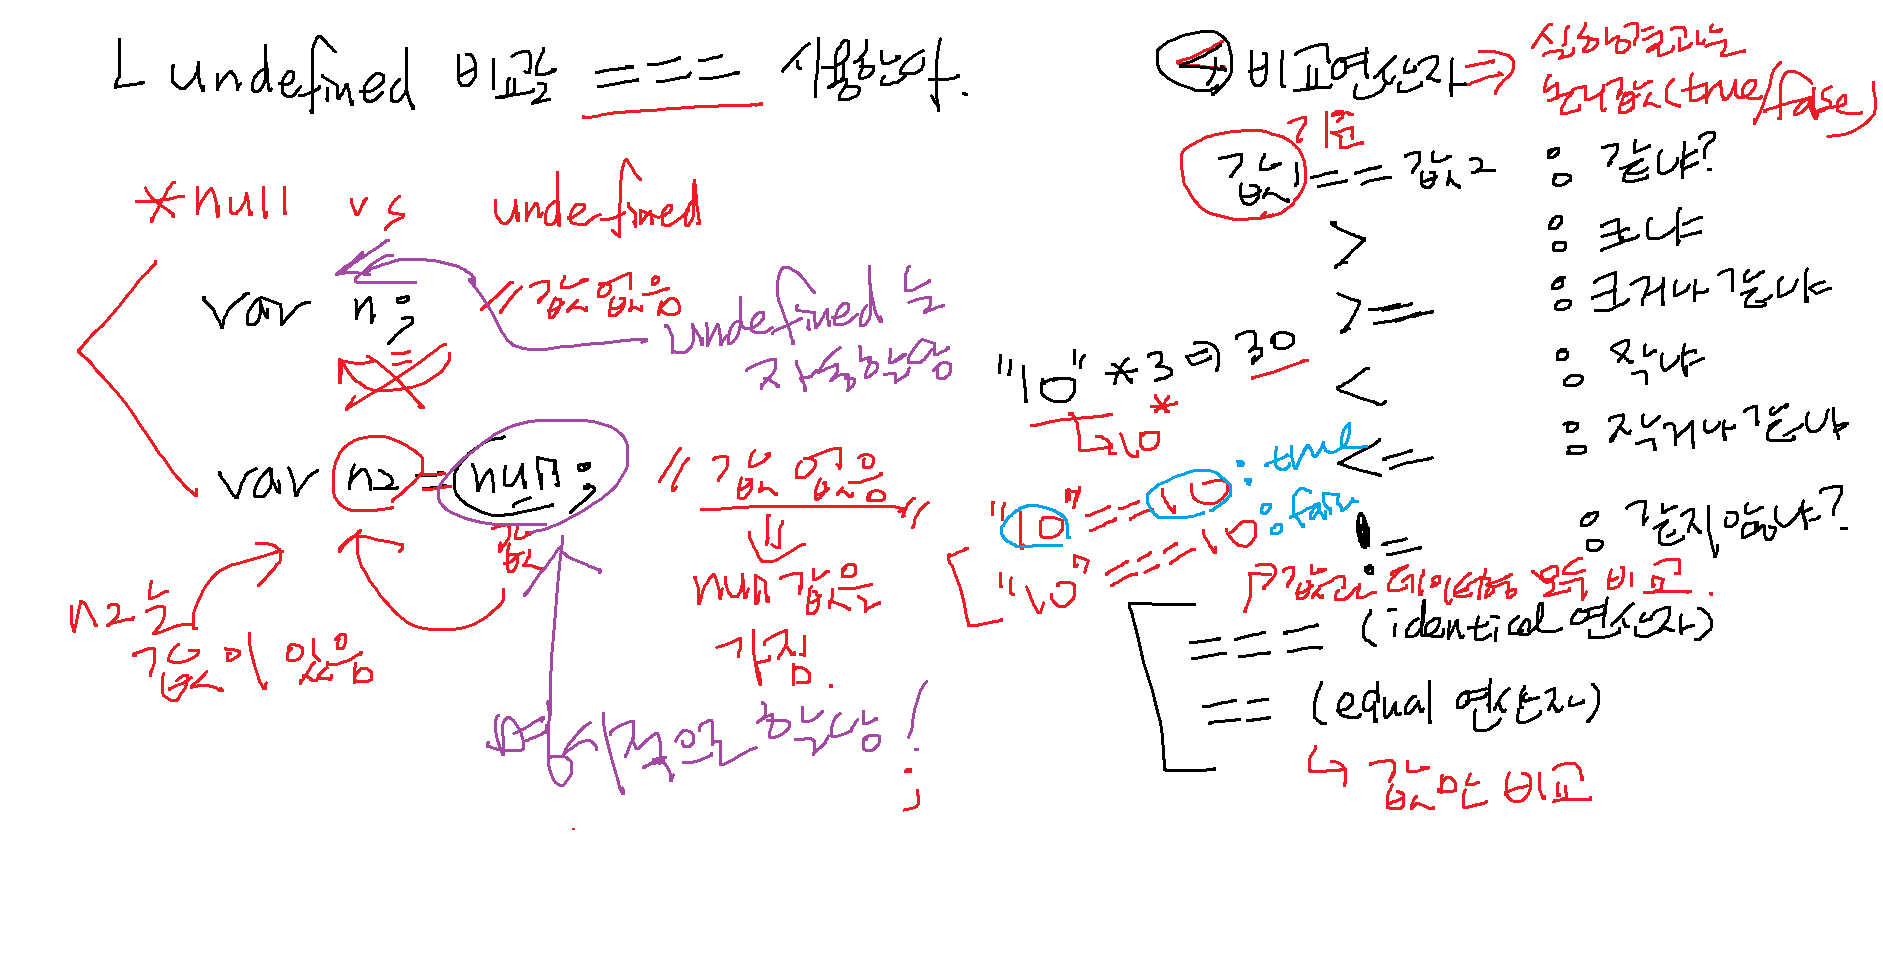 ㄴ undefined 비교는 === 사용한다.
*null vs undefined
var n; // 값 없음
undefined 는
자동할당
var n2 = null; // 값 없음
값
null 값을
가짐.
n2는
값이 있음
명시적으로 할당!
비교연산자 ⇒ 실행결과는
논리값(true/false)
기준
값1 == 값2 : 같냐?
> : 크냐
>= : 크거나 같냐
< : 작냐
<= : 작거나 같냐
!= : 같지않냐?
"10" * 3 ⇒ 30
↳ 10 *
"10" == 10 : true
"10" === 10 : false
↱ 값과 데이터형 모두 비교.
=== (identical 연산자)
== (equal 연산자)
↳ 값만 비교